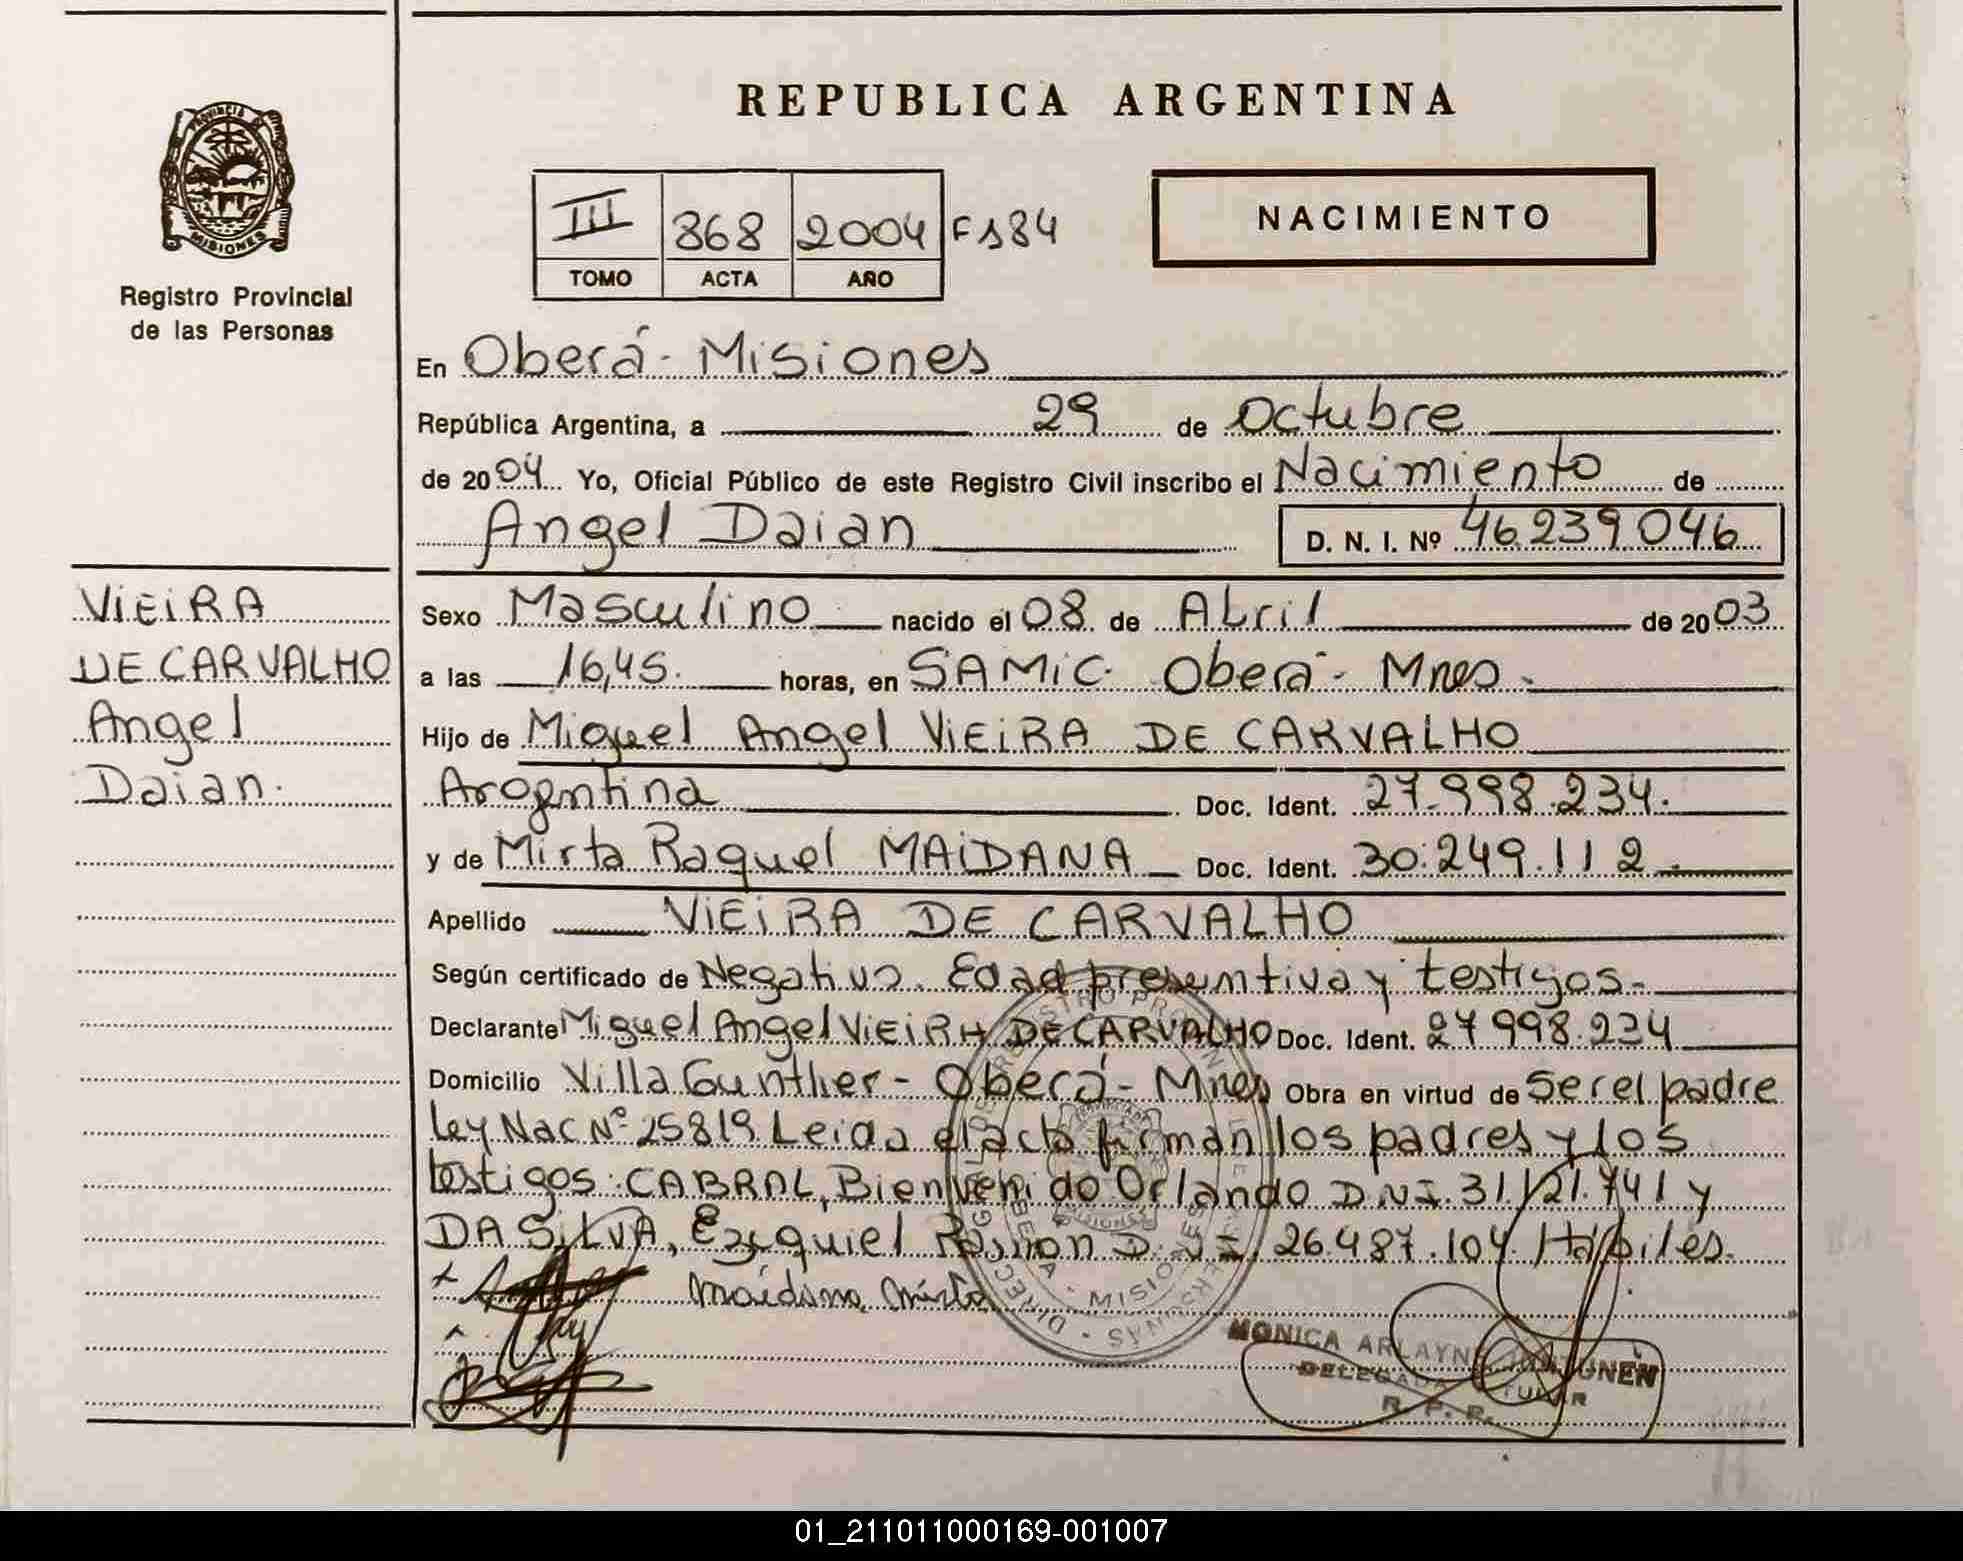 REPUBLICA ARGENTINA
PROVINCIA DE
MISIONES
Registro Provincial
de las Personas
III 868 2004 F 184
TOMO ACTA AÑO
NACIMIENTO
En Oberá - Misiones
República Argentina, a 29 de Octubre
de 2004 Yo, Oficial Público de este Registro Civil inscribo el Nacimiento de
Angel Daian D. N. I. Nº 46.239.046
VIEIRA
DE CARVALHO
Angel
Daian.
Sexo Masculino nacido el 08 de Abril de 2003
a las 16,45. horas, en SAMIC. Oberá - Mnes.
Hijo de Miguel Angel VIEIRA DE CARVALHO
Argentina Doc. Ident. 27.998.234.
y de Mirta Raquel MAIDANA Doc. Ident. 30.249.112.
Apellido VIEIRA DE CARVALHO
Según certificado de Negativo. Edad presuntiva y testigos.
Declarante Miguel Angel VIEIRA DE CARVALHO Doc. Ident. 27 998.234
Domicilio Villa Gunther - Oberá - Mnes Obra en virtud de Ser el padre
ley Nac Nº 25819 Leida el acta firman los padres y los
testigos: CABRAL, Bienvenido Orlando D.N.I. 31.121.741 y
DA SILVA, Ezequiel Ramon D.N.I. 26.487.104. Hábiles.
Maidana Mirta
MONICA ARLAYNE
DELEGADA TITULAR
R. P. P.
01_211011000169-001007